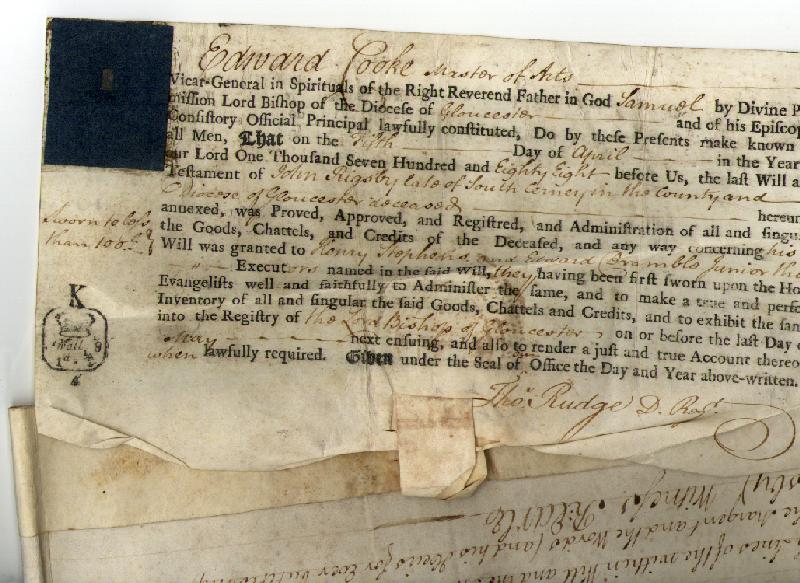 Edward Cooke Master of Arts
Vicar-General in Spirituals of the Right Reverend Father in God Samuel by Divine P
mission Lord Bishop of the Diocese of Gloucester and of his Episcop
Consistory Official Principal lawfully constituted, Do by these Presents make known
all Men, That on the Fifth Day of April in the Year
our Lord One Thousand Seven Hundred and Eighty Eight before Us, the last Will a
Testament of John Rigsby late of South Cerney in the County and
Diocese of Gloucester deceased hereun
annexed, was Proved, Approved, and Registred, and Administration of all and singu
the Goods, Chattels, and Credits of the Deceased, and any way concerning his
Will was granted to Henry Stephens and Edward Bramble Junior the
Executors named in the said Will, they having been first sworn upon the Ho
Evangelists well and faithfully to Administer the same, and to make a true and perfe
Inventory of all and singular the said Goods, Chattels and Credits, and to exhibit the sam
into the Registry of the Lord Bishop of Gloucester on or before the last Day o
May next ensuing, and also to render a just and true Account thereo
when lawfully required. Given under the Seal of Office the Day and Year above-written.
Thos. Rudge D. Regr.
Sworn to less
than 100£
K
4
Witness